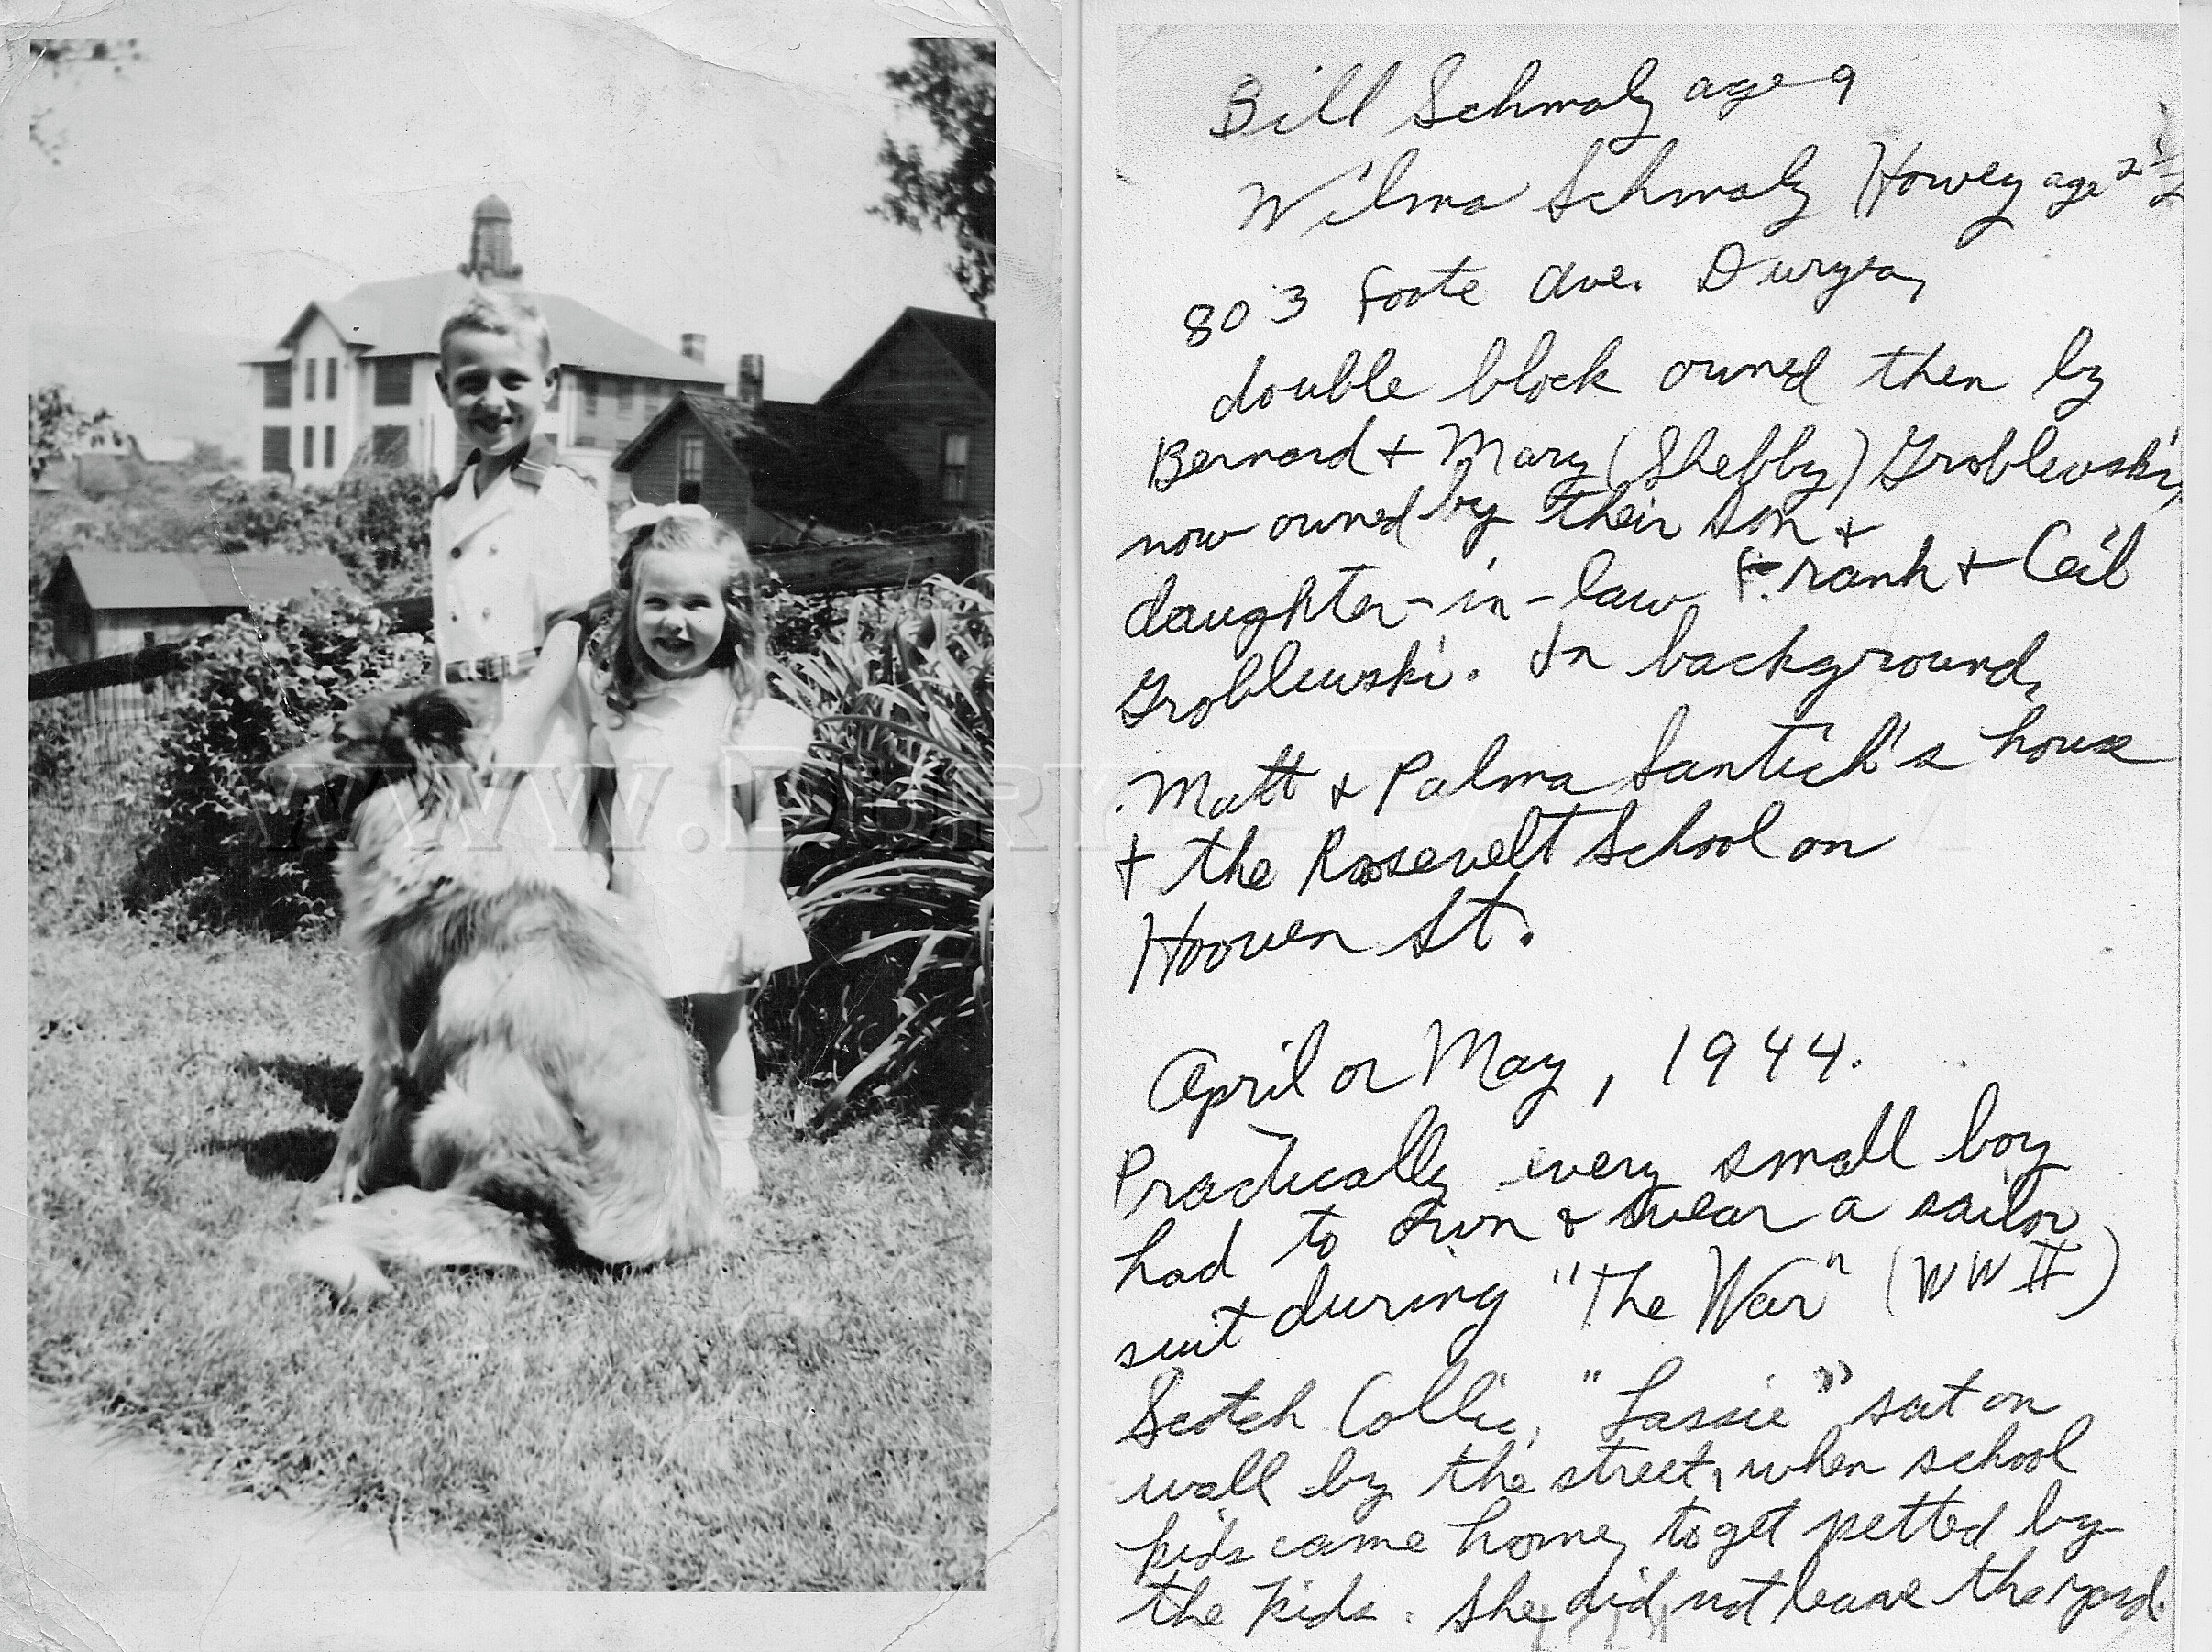 Bill Schmaly age 9
Wilma Schmaly Howey age 2 1/2
803 Foote Ave. Duryea,
double block owned then by
Bernard + Mary (Shebby) Groblewski,
now owned by their son +
daughter-in-law Frank + Ceil
Groblewski. In background,
Matt & Palma Santich's house
+ the Roosevelt School on
Hoover St.
April or May, 1944.
Practically every small boy
had to own & wear a sailor
suit during "The War" (WW II)
Scotch Collie, "Lassie" sat on
wall by the street, when school
kids came home, to get petted by
the kids. She did not leave the yard.